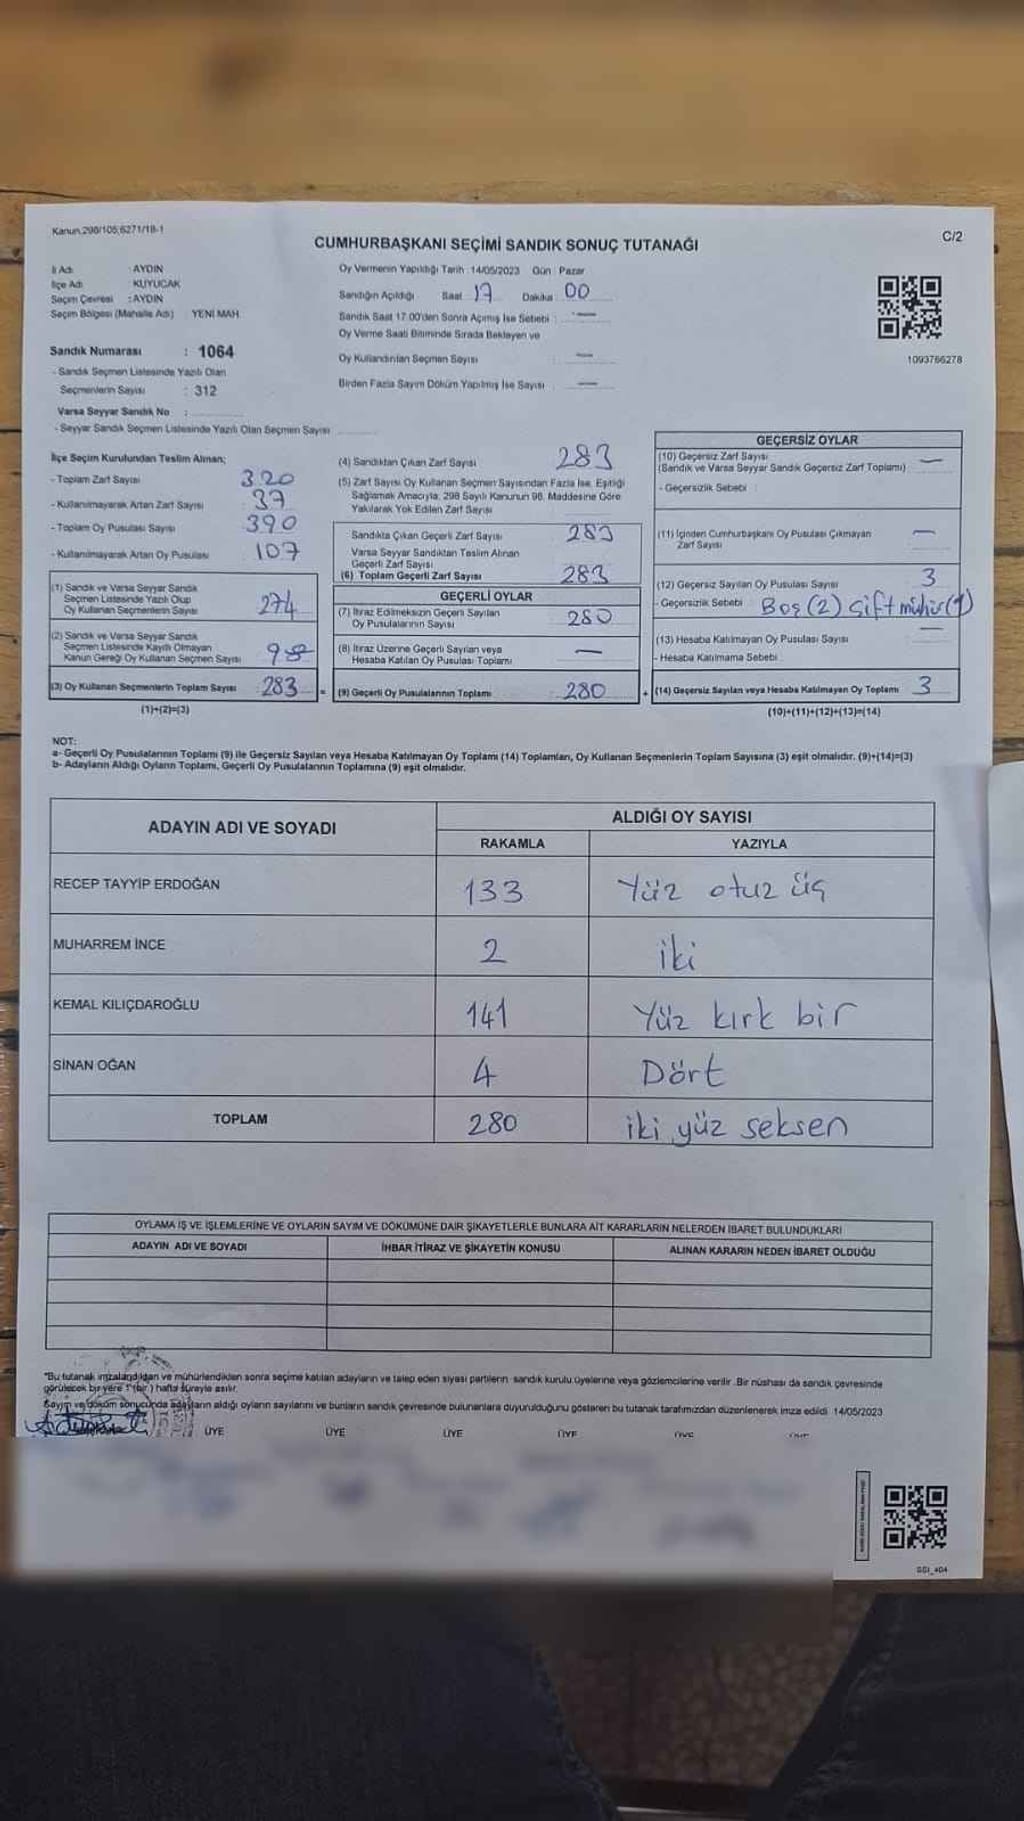 Kanun.298/105;6271/18-1
C/2
CUMHURBAŞKANI SEÇİMİ SANDIK SONUÇ TUTANAĞI
İl Adı : AYDIN
İlçe Adı : KUYUCAK
Seçim Çevresi : AYDIN
Seçim Bölgesi (Mahalle Adı) : YENİ MAH.
Oy Vermenin Yapıldığı Tarih : 14/05/2023 Gün : Pazar
Sandığın Açıldığı Saat 17 Dakika 00
Sandık Saat 17.00'den Sonra Açımış İse Sebebi : —
Oy Verme Saati Bitiminde Sırada Bekleyen ve
Oy Kullandırılan Seçmen Sayısı : —
Birden Fazla Sayım Döküm Yapılmış İse Sayısı : —
1093766278
Sandık Numarası : 1064
- Sandık Seçmen Listesinde Yazılı Olan
Seçmenlerin Sayısı : 312
Varsa Seyyar Sandık No :
- Seyyar Sandık Seçmen Listesinde Yazılı Olan Seçmen Sayısı
İlçe Seçim Kurulundan Teslim Alınan;
- Toplam Zarf Sayısı 320
- Kullanılmayarak Artan Zarf Sayısı 37
- Toplam Oy Pusulası Sayısı 390
- Kullanılmayarak Artan Oy Pusulası 107
(1) Sandık ve Varsa Seyyar Sandık
Seçmen Listesinde Yazılı Olup
Oy Kullanan Seçmenlerin Sayısı 274
(2) Sandık ve Varsa Seyyar Sandık
Seçmen Listesinde Kayıtlı Olmayan
Kanun Gereği Oy Kullanan Seçmen Sayısı 9
(3) Oy Kullanan Seçmenlerin Toplam Sayısı 283 =
(1)+(2)=(3)
(4) Sandıktan Çıkan Zarf Sayısı 283
(5) Zarf Sayısı Oy Kullanan Seçmen Sayısından Fazla İse, Eşitliği
Sağlamak Amacıyla, 298 Sayılı Kanunun 98. Maddesine Göre
Yakılarak Yok Edilen Zarf Sayısı
Sandıkta Çıkan Geçerli Zarf Sayısı 283
Varsa Seyyar Sandıktan Teslim Alınan
Geçerli Zarf Sayısı
(6) Toplam Geçerli Zarf Sayısı 283
GEÇERLİ OYLAR
(7) İtiraz Edilmeksizin Geçerli Sayılan
Oy Pusulalarının Sayısı 280
(8) İtiraz Üzerine Geçerli Sayılan veya
Hesaba Katılan Oy Pusulası Toplamı —
(9) Geçerli Oy Pusulalarının Toplamı 280 +
GEÇERSİZ OYLAR
(10) Geçersiz Zarf Sayısı —
(Sandık ve Varsa Seyyar Sandık Geçersiz Zarf Toplamı)
- Geçersizlik Sebebi :
(11) İçinden Cumhurbaşkanı Oy Pusulası Çıkmayan —
Zarf Sayısı
(12) Geçersiz Sayılan Oy Pusulası Sayısı 3
- Geçersizlik Sebebi : Boş (2) Çift mühür (1)
(13) Hesaba Katılmayan Oy Pusulası Sayısı —
- Hesaba Katılmama Sebebi :
(14) Geçersiz Sayılan veya Hesaba Katılmayan Oy Toplamı 3
(10)+(11)+(12)+(13)=(14)
NOT:
a- Geçerli Oy Pusulalarının Toplamı (9) ile Geçersiz Sayılan veya Hesaba Katılmayan Oy Toplamı (14) Toplamları, Oy Kullanan Seçmenlerin Toplam Sayısına (3) eşit olmalıdır. (9)+(14)=(3)
b- Adayların Aldığı Oyların Toplamı, Geçerli Oy Pusulalarının Toplamına (9) eşit olmalıdır.
ADAYIN ADI VE SOYADI
ALDIĞI OY SAYISI
RAKAMLA YAZIYLA
RECEP TAYYİP ERDOĞAN 133 Yüz otuz üç
MUHARREM İNCE 2 iki
KEMAL KILIÇDAROĞLU 141 Yüz kırk bir
SİNAN OĞAN 4 Dört
TOPLAM 280 iki yüz seksen
OYLAMA İŞ VE İŞLEMLERİNE VE OYLARIN SAYIM VE DÖKÜMÜNE DAİR ŞİKAYETLERLE BUNLARA AİT KARARLARIN NELERDEN İBARET BULUNDUKLARI
ADAYIN ADI VE SOYADI İHBAR İTİRAZ VE ŞİKAYETİN KONUSU ALINAN KARARIN NEDEN İBARET OLDUĞU
"Bu tutanak imzalandıktan ve mühürlendikten sonra seçime katılan adayların ve talep eden siyasi partilerin sandık kurulu üyelerine veya gözlemcilerine verilir .Bir nüshası da sandık çevresinde
görülecek bir yere 1 (bir ) hafta süreyle asılır.
Sayım ve döküm sonucunda adayların aldığı oyların sayılarını ve bunların sandık çevresinde bulunanlara duyurulduğunu gösteren bu tutanak tarafımızdan düzenlenerek imza edildi. 14/05/2023
ÜYE ÜYE ÜYE ÜYE ÜYE